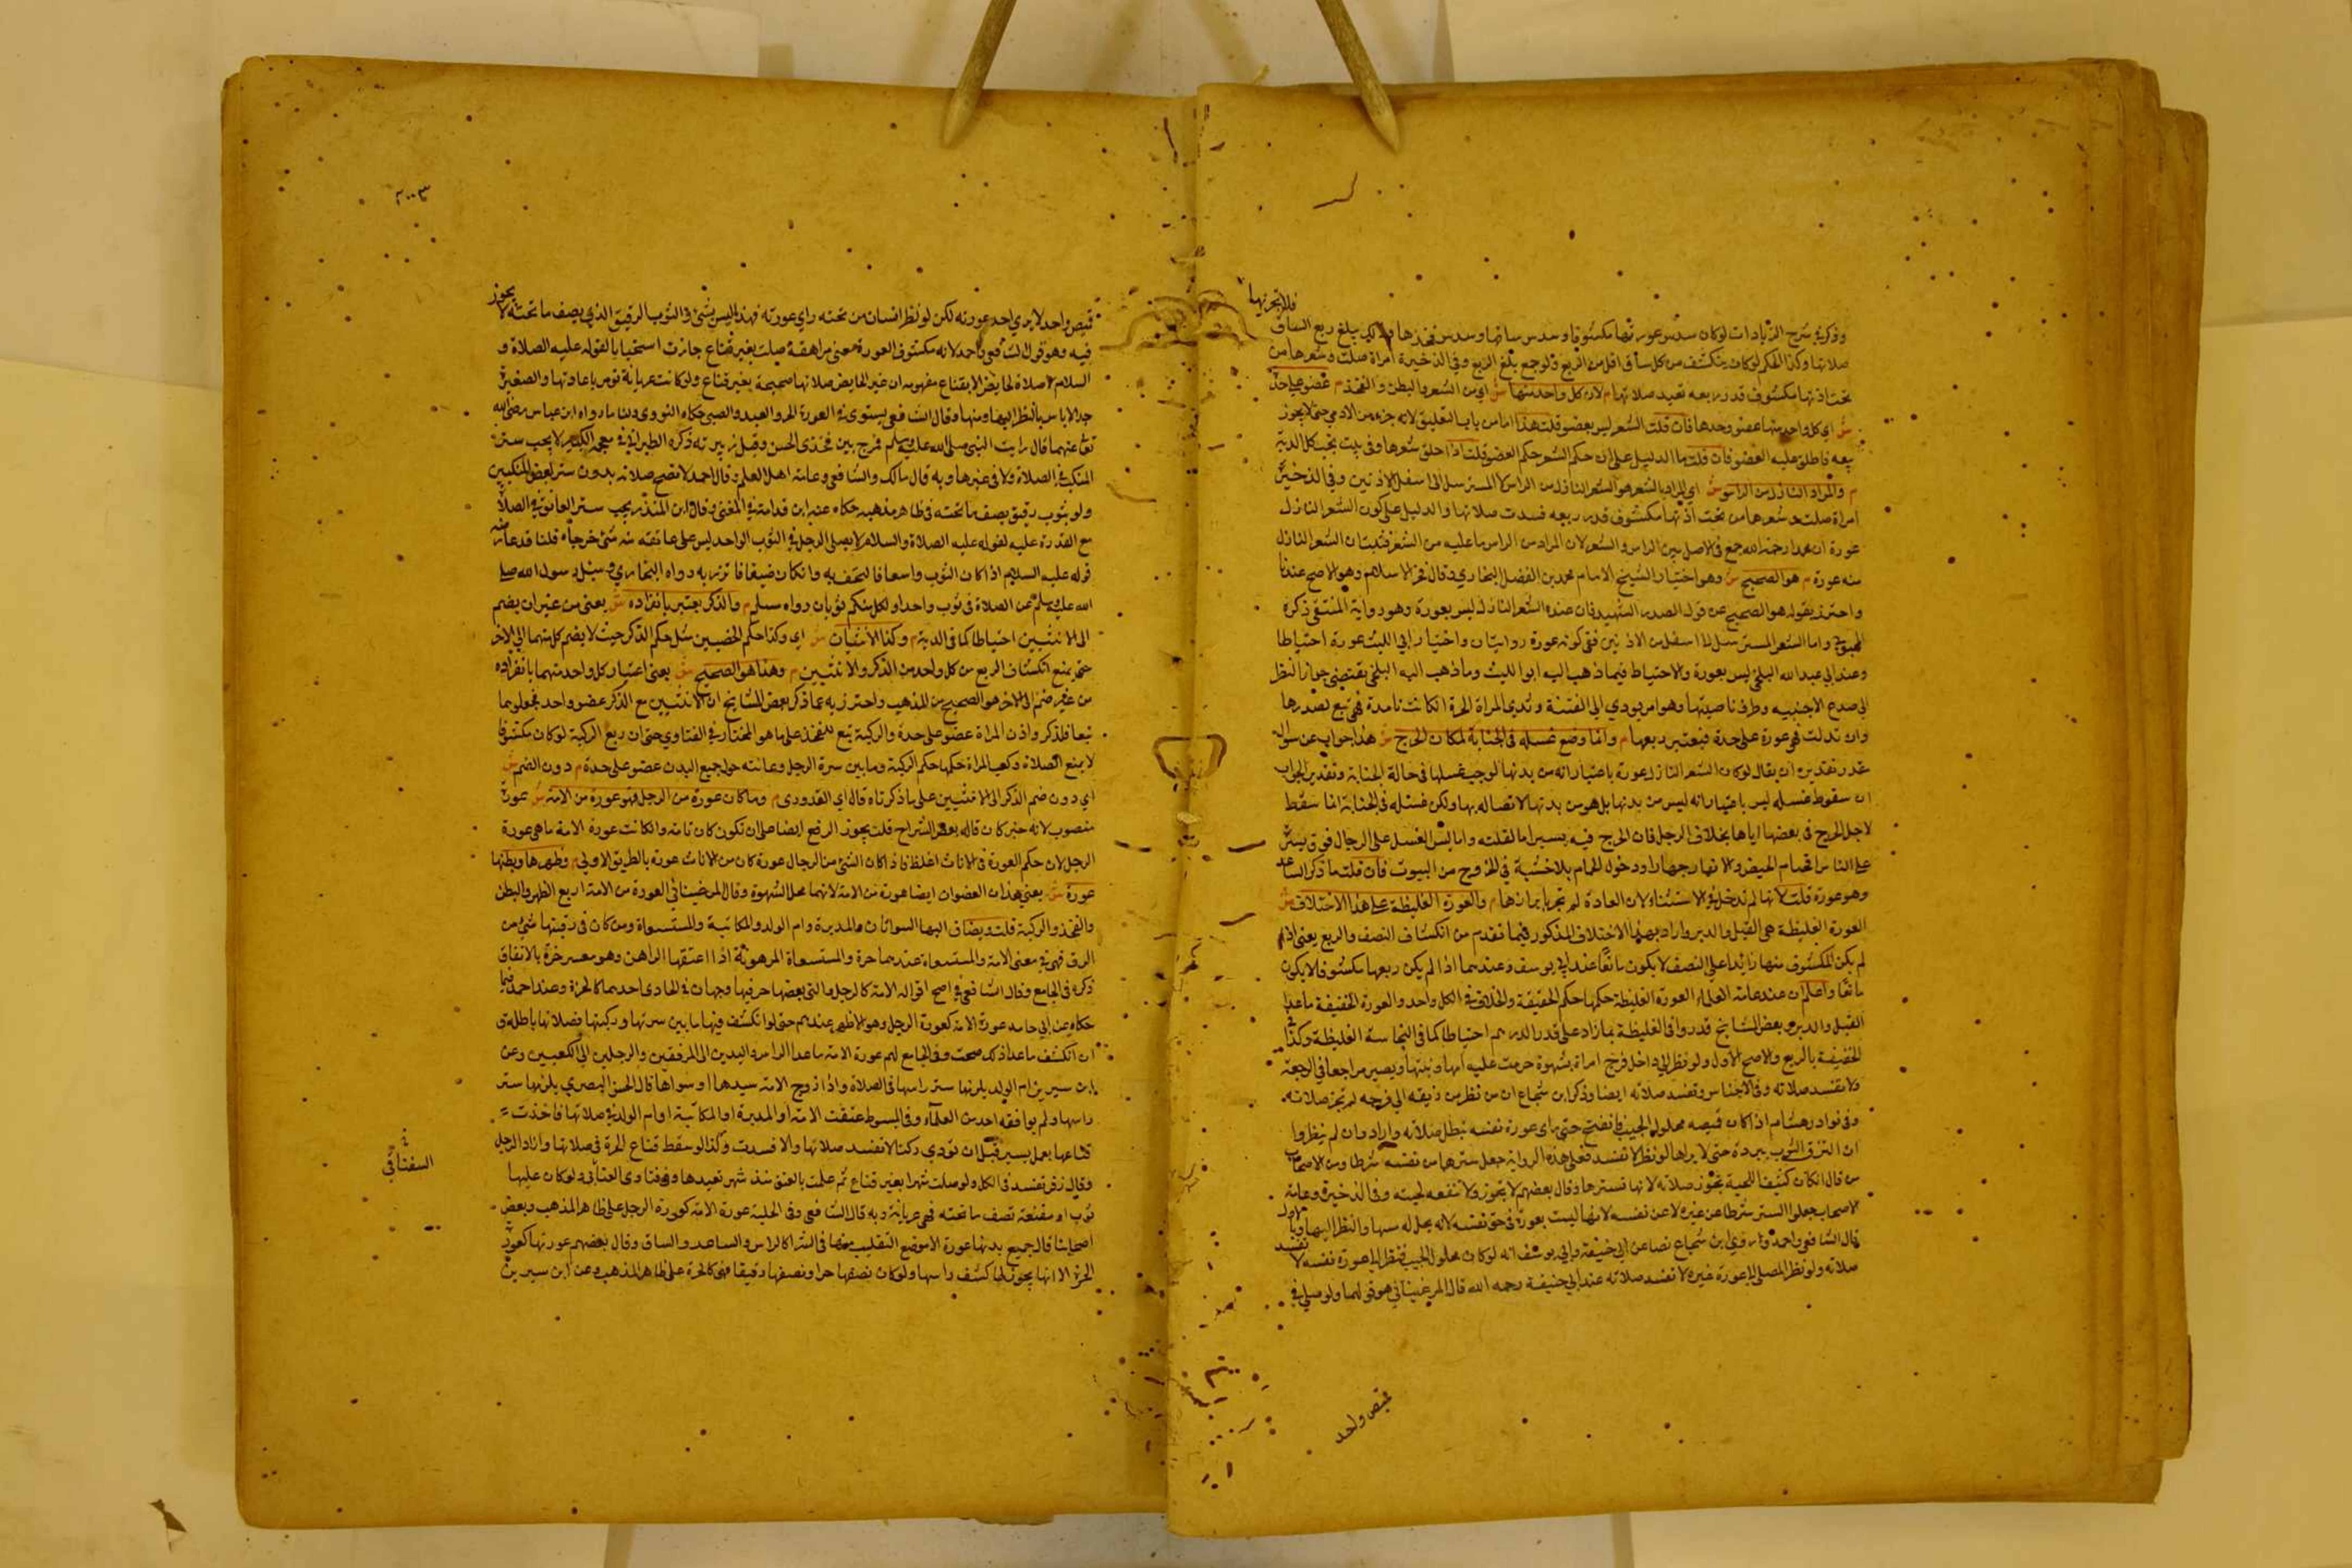 وذكر في شرح الزيادات لوكان سدس عورتها مكشوفا وسدس ساقها وسدس فخذها وذلك يبلغ ربع الساق
فلا تجزيها
صلاتها وكذا الحكم لوكان ينكشف من كل ساق اقل من الربع ولوجمع يبلغ الربع وفي الذخيرة امراة صلت وشعرها من
تحت اذنها مكشوف قدر ربعه تعيد صلاتها م لان كل واحد منها ش اي من الشعر والبطن والفخذ م عضو على حدة
ش اي كل واحد منها عضو وحدها فان قلت الشعر ليس بعضو قلت هذا اما من باب التغليب لانه جزء من الادمي حتى لا يجوز
بيعه فاطلق عليه العضو فان قلت ما الدليل على ان حكم الشعر حكم العضو قلت اذا حلق شعرها ولم ينبت يجب كل الدية
م والمراد النازل من الراس ش اي المراد بالشعر هو الشعر النازل من الراس لا المسترسل الى اسفل الاذنين وفي الذخيرة
امراة صلت وشعرها من تحت اذنها مكشوف قدر ربعه فسدت صلاتها والدليل على كون الشعر النازل
عورة ان محمدا رحمه الله جمع في الاصل بين الراس والشعر لان المراد من الراس ما عليه من الشعر فثبت ان الشعر النازل
منه عورة م هو الصحيح ش وهو اختيار الشيخ الامام محمد بن الفضل البخاري وقال فخر الاسلام وهو الاصح عندنا
واحترز بقوله هو الصحيح عن قول الصدر الشهيد فان عنده الشعر النازل ليس بعورة وهو رواية المنتقى ذكره
المحبوبي واما الشعر المسترسل الى اسفل من الاذنين ففي كونه عورة روايتان واختيار ابي الليث عورة احتياطا
وعند ابي عبد الله البلخي ليس بعورة والاحتياط فيما ذهب اليه ابو الليث وما ذهب اليه البلخي يقتضي جواز النظر
الى صدغ الاجنبيه وطرف ناصيتها وهو امر يودي الى الفتنة وثدي المراة الحرة ان كانت ناهدة فهي تبع لصدرها
وان تدلت فهي عورة على حدة فيعتبر ربعها م وانما وضع غسله في الجنابة لمكان الحرج ش هذا جواب عن سوال
مقدر تقديره ان يقال لوكان الشعر النازل عورة باعتبار انه من بدنها لوجب غسلها في حالة الجنابة وتقدير الجواب
ان سقوط غسله ليس باعتبار انه ليس من بدنها بل هو من بدنها لاتصاله بها ولكن غسله في الجنابة انما سقط
لاجل الحرج
وهو عورة قلت لانها لم تدخل في الاستثناء لان العادة لم تجر بابرازها م والعورة الغليظة على هذا الاختلاف ش
العورة الغليظة هي القبل والدبر واراد بهذا الاختلاف المذكور فيما تقدم من انكشاف النصف والربع يعني اذا
لم يكن المكشوف منها زايدا على النصف لا يكون مانعا عند ابي يوسف وعندهما اذا لم يكن ربعها مكشوفا لا يكون
مانعا واعلم ان عند عامة العلماء العورة الغليظة حكمها حكم الخفيفة والخلاف في الكل واحد والعورة الخفيفة ما عدا
القبل والدبر وبعض المشايخ قدروا في الغليظة بما زاد على قدر الدرهم احتياطا كما في النجاسة الغليظة وكذا في
الخفيفة بالربع والاصح الاول ولو نظر الى داخل فرج امراة بشهوة حرمت عليه امها وبنتها ويصير مراجعا في الرجعة
ولا تفسد صلاته وفي الاجناس وتفسد صلاته ايضا وذكر ابن شجاع ان من نظر من زيقه الى فرجه لم تجز صلاته
وفي نوادر هشام اذا كان قميصه محلول الجيب فانفتح حتى راى عورة نفسه تبطل صلاته وان لم ينظروا
ان التزق الثوب ببدنه حتى لا يراها لو نظر لا تفسد فعلى هذه الرواية جعل سترها من نفسه شرطا ومن الاصحاب
من قال ان كان كثيف اللحية تجوز صلاته لانها تسترها وقال بعضهم لا تجوز ولا تنفعه لحيته وفي الذخيرة وعامة
الاصحاب جعلوا الستر شرطا عن غيره لا عن نفسه لانها ليست بعورة في حق نفسه لانه يحل له مسها والنظر اليها وبالاول
قال الشافعي واحمد وروى ابن شجاع نصا عن ابي حنيفة وابي يوسف انه لوكان محلول الجيب فنظر الى عورة نفسه لا تفسد
صلاته ولو نظر المصلي الى عورة غيره لا تفسد صلاته عند ابي حنيفة رحمه الله قال المرغيناني هو قولهما ولو صلى في
قميص واحد
٢٠٠٣
قميص واحد لا يرى احد عورته لكن لو نظر انسان من تحته راى عورته فهذا ليس بشي والثوب الرقيق الذي يصف ما تحته لا يجوز
فيه وهو قول الشافعي واحمد لانه مكشوف العورة معنى مراهقة صلت بغير قناع جازت استحسانا لقوله عليه الصلاة و
السلام لا صلاة لحايض الا بقناع مفهومه ان غير الحايض صلاتها صحيحة بغير قناع ولوكانت عريانة تومر باعادتها والصغيرة
جدا لا باس بالنظر اليها ومسها وقال الشافعي يستوي في العورة الحر والعبد والصبي حكاه النووي ولنا ما رواه ابن عباس رضي الله
تعالى عنهما قال رايت النبي صلى الله عليه وسلم فرج بين فخذي الحسن وقبل زبيبته ذكره الطبراني في معجمه الكبير لا يجب ستر
المنكب في الصلاة ولا في غيرها وبه قال مالك والشافعي وعامة اهل العلم وقال احمد لا تصح صلاته بدون ستر بعض المنكبين
ولو بثوب رقيق يصف ما تحته في ظاهر مذهبه حكاه عنه ابن قدامة في المغني وقال ابن المنذر يجب ستر العاتق في الصلاة
مع القدرة عليه لقوله عليه الصلاة والسلام لا يصلي الرجل في الثوب الواحد ليس على عاتقه منه شي
قوله عليه السلام اذا كان الثوب واسعا فالتحف به وان كان ضيقا فاتزر به رواه البخاري وسيل رسول الله صلى
الله عليه وسلم عن الصلاة في ثوب واحد اولكلكم ثوبان رواه مسلم م والذكر يعتبر بانفراده ش يعني من غير ان يضم
الى الانثيين احتياطا كما في الدية م وكذا الانثيان ش اي وكذا حكم الخصيتين مثل حكم الذكر حيث لا يضم كل منهما الى الاخر
حتى يمنع انكشاف الربع من كل واحد من الذكر والانثيين م وهذا هو الصحيح ش يعني اعتبار كل واحد منهما بانفراده
من غير ضم الى الاخر هو الصحيح من المذهب واحترز به عما ذكر بعض المشايخ ان الانثيين مع الذكر عضو واحد فجعلوهما
تبعا للذكر واذن المراة عضو على حدة والركبة تبع للفخذ على ما هو المختار في الفتاوي حتى ان ربع الركبة لوكان مكشوفا
لا يمنع الصلاة وكعب المراة حكمها حكم الركبة وما بين سرة الرجل وعانته حول جميع البدن عضو على حدة م دون الضم ش
اي دون ضم الذكر الى الانثيين على ما ذكرناه قال اي القدوري م وما كان عورة من الرجل فهو عورة من الامة ش عورة
منصوب لانه خبر كان قاله بعض الشراح قلت يجوز الرفع ايضا على ان تكون كان تامة وانما كانت عورة الامة ما هي عورة
الرجل لان حكم العورة في الاناث اغلظ فاذا كان الشي من الرجال عورة كان من الاناث عورة بالطريق الاولى م وظهرها وبطنها
عورة ش يعني هذان العضوان ايضا عورة من الامة لانهما محل الشهوة وقال المرغيناني العورة من الامة اربع الظهر والبطن
والفخذ والركبة قلت ويضاف اليها السواتان والمدبرة وام الولد والمكاتبة والمستسعاة ومن كان في رقبتها شي من
الرق فهي في معنى الامة والمستسعاة عندهما حرة والمستسعاة المرهونة اذا اعتقها الراهن وهو معسر حرة بالاتفاق
ذكره في الجامع وقال الشافعي في اصح اقواله الامة كالرجل والتي بعضها حر فيها وجهان في الحاوي احدهما كالحرة وعند احمد فيما
حكاه عن ابي حامد عورة الامة كعورة الرجل وهو الاظهر عندهم حتى لو انكشف فيها ما بين سرتها وركبتها فصلاتها باطلة و
ان انكشف ما عدا ذلك صحت وفي الجامع لهم عورة الامة ما عدا الراس واليدين الى المرفقين والرجلين الى الكعبين وعن
ابن سيرين ام الولد يلزمها ستر راسها في الصلاة واذا زوج الامة سيدها او سواها قال الحسن البصري يلزمها ستر
راسها ولم يوافقه احد من العلماء وفي المبسوط عتقت الامة او المدبرة او المكاتبة او ام الولد في صلاتها فاخذت
قناعها بعمل يسير قبل ان تودي ركنا لا تفسد صلاتها والا فسدت وكذا لو سقط قناع الحرة في صلاتها وازار الرجل
وقال زفر تفسد في الكل ولو صلت شهرا بغير قناع ثم علمت بالعتق منذ شهر تعيدها وفي فتاوى العتابي ولوكان عليها
ثوب او مقنعة تصف ما تحته فهي عريانة وبه قال الشافعي وفي الحلية عورة الامة كعورة الرجل على ظاهر المذهب وبعض
اصحابنا قال جميع بدنها عورة الا موضع التقليب منها في الشراء كالراس والساعد والساق وقال بعضهم عورتها كعورة
الحرة الا انها يجوز لها كشف راسها ولوكان نصفها حرا ونصفها رقيقا فهي كالحرة على ظاهر المذهب وعن ابن سيرين
السغناقي